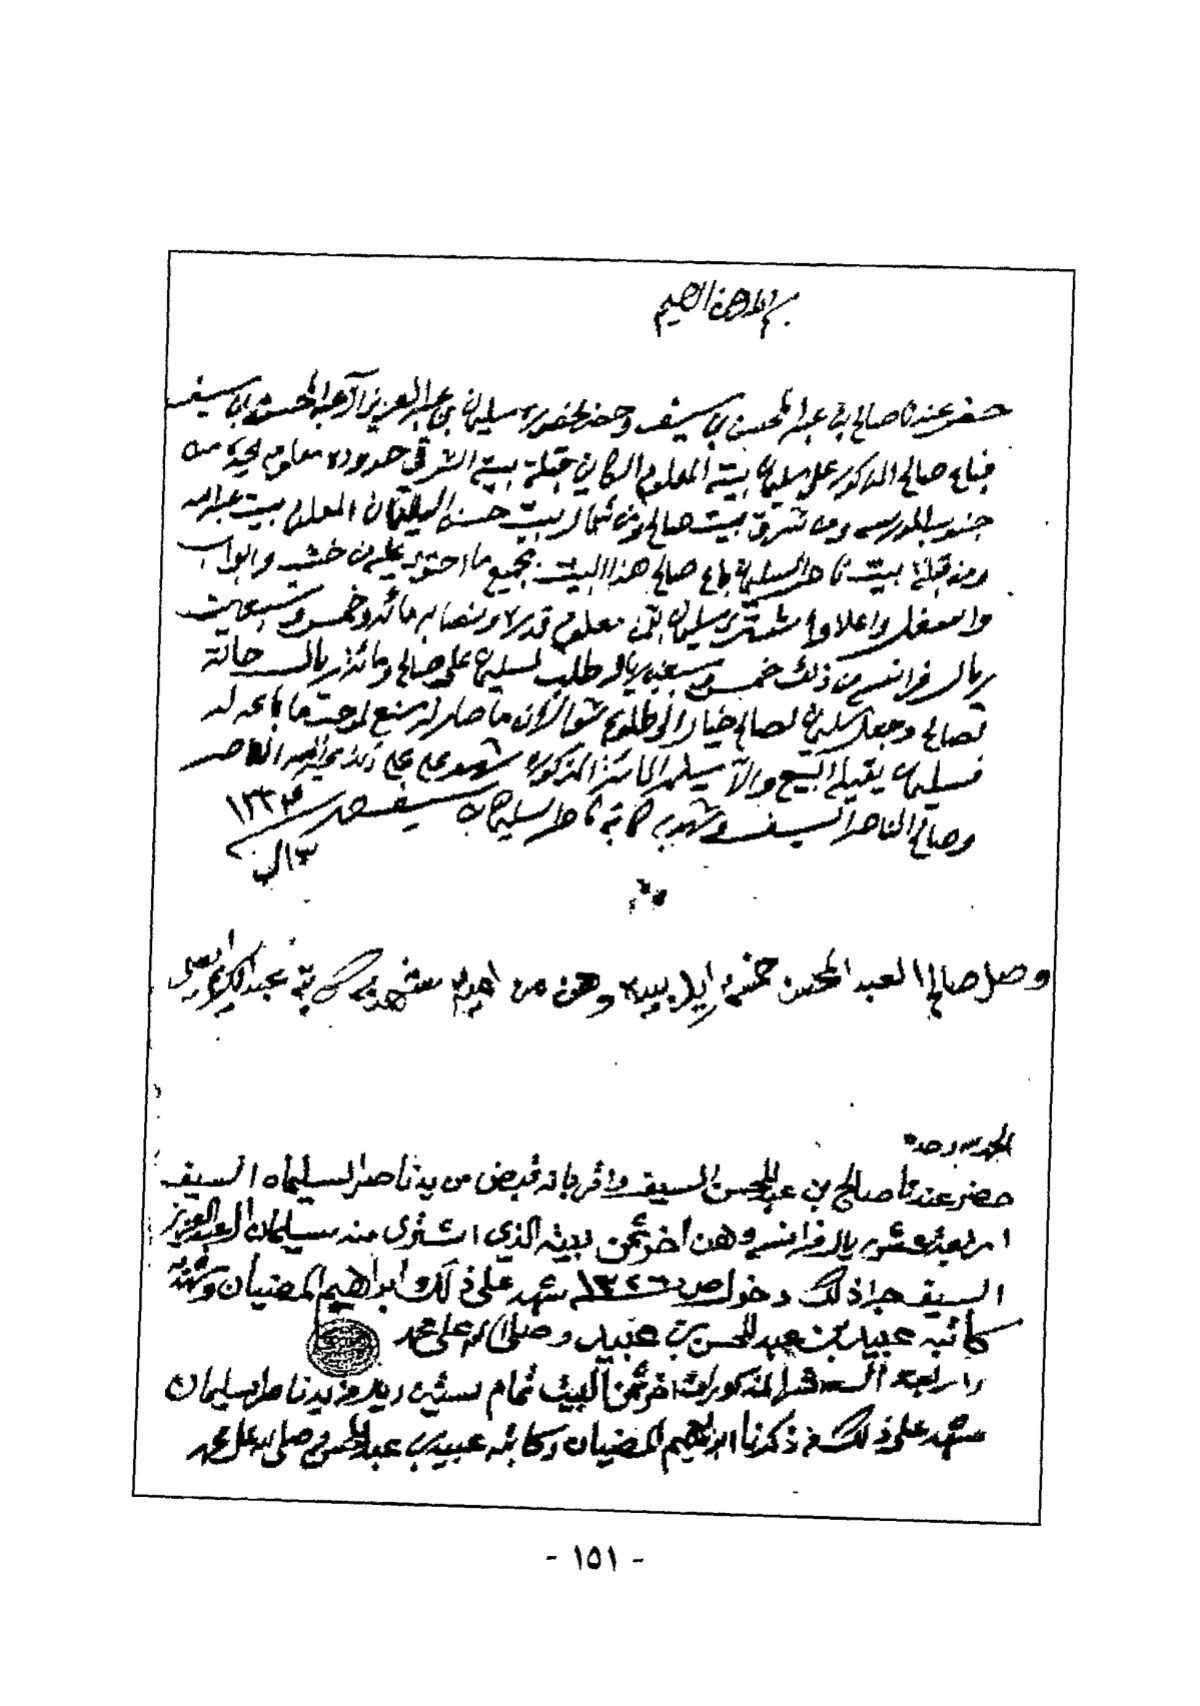 بسم الله الرحمن الرحيم
حضر عندنا صالح بن عبد المحسن بن سيف وحضر لحضوره سليمان بن عبد العزيز آل عبد المحسن بن سيف
فباع صالح المذكور على سليمان بيته المعلوم الكاين قبلة بيته الشرقي حدوده معلومه يحده من
جنوب المدرسه ومن شرق بيت صالح ومن شمال بيت حسنه المعلوم بيت عبد الله
ومن قبلة بيت ناصر السليمان باع صالح هذا البيت بجميع ما احتوى عليه من خشب وابواب
واسفل واعلا واشترى سليمان بثمن معلوم قدره ونصابه مائة وخمس وسبعين
ريال فرانسه من ذلك خمس وسبعين ريال طلب لسليمان على صالح ومائة ريال حالة
لصالح وجعل سليمان لصالح خيار الى طلوع شوال ان ما صار له لوحة ما باعه له
فسليمان يقيله البيع والا يسلم المائة المذكورة شهد على ذلك الناصر
وصالح الناصر السيف وشهد به كاتبه ناصر السليمان بن سيف ١٣٣٤
وصل صالح العبد المحسن خمسة اريل بيده وهن من شهد به كاتبه عبد الكريم
الحمد لله وحده
حضر عندنا صالح بن عبد المحسن السيف واقر بانه قبض من يد ناصر السليمان السيف
اربعة وعشرين ريال فرانسه وهن آخر ثمن بيته الذي اشترى منه سليمان العبد العزيز
السيف جرا ذلك دخول ص ١٣٢٦ شهد على ذلك ابراهيم المضيان وشهد به
كاتبه عبيد بن عبد المحسن بن عبيد وصلى الله على محمد
واربعة المذكورات آخر ثمن البيت تمام ستين ريال من يد ناصر السليمان
شهد على ذلك من ذكرنا ابراهيم المضيان وكاتبه عبيد بن عبد المحسن وصلى الله على محمد
- ١٥١ -